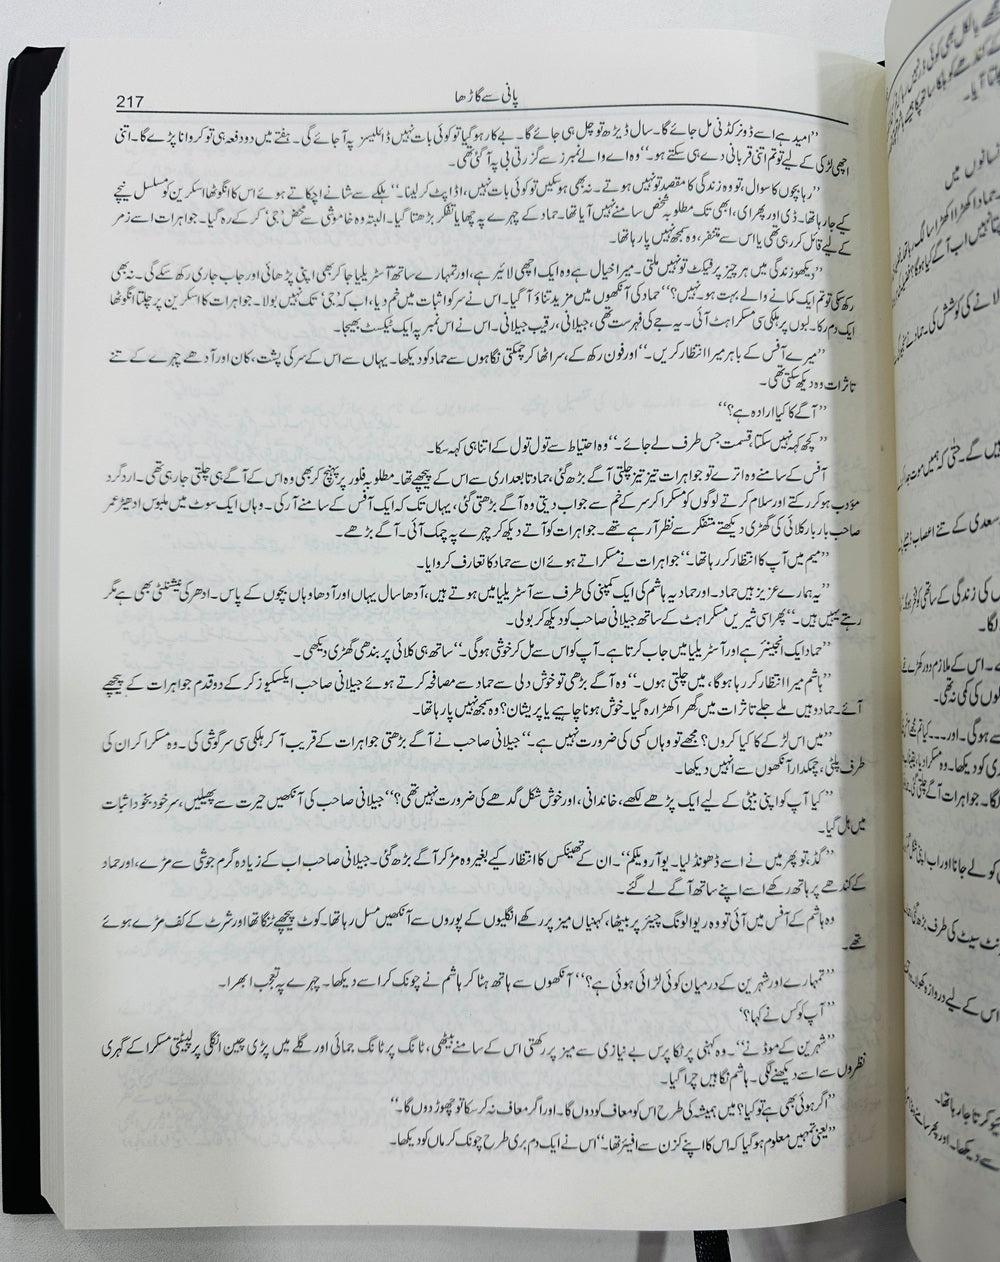 217
پانی سے گاڑھا
”امید ہے اسے ڈونر کڈنی مل جائے گا۔ سال ڈیڑھ تو چل ہی جائے گا۔ بے کار ہو گیا تو کوئی بات نہیں ڈائلیسز پہ آ جائے گی۔ ہفتے میں دو دفعہ ہی تو کروانا پڑے گا۔ اتنی
اچھی لڑکی کے لیے تو تم اتنی قربانی دے ہی سکتے ہو۔“ وہ اے والے نمبرز سے گزرتی بی پہ آ گئی تھی۔
”رہا بچوں کا سوال، تو وہ زندگی کا مقصد تو نہیں ہوتے۔ نہ بھی ہو سکیں تو کوئی بات نہیں، اڈاپٹ کر لینا۔“ ہلکے سے شانے اچکاتے ہوئے اس کا انگوٹھا اسکرین کو مسلسل نیچے
کیے جا رہا تھا۔ ڈی اور پھر ای، ابھی تک مطلوبہ شخص سامنے نہیں آیا تھا۔ حماد کے چہرے پہ چھایا تفکر بڑھتا گیا۔ البتہ وہ خاموشی سے محض ’جی‘ کر کے رہ گیا۔ جواہرات اسے زمر
کے لیے قائل کر رہی تھی یا اس سے متنفر، وہ سمجھ نہیں پا رہا تھا۔
”دیکھو زندگی میں ہر چیز پرفیکٹ تو نہیں ملتی۔ میرا خیال ہے وہ ایک اچھی لائیر ہے، اور تمہارے ساتھ آسٹریلیا جا کر بھی اپنی پڑھائی اور جاب جاری رکھ سکے گی۔ نہ بھی
رکھ سکی تو تم ایک کمانے والے بہت ہو۔ نہیں؟“ حماد کی آنکھوں میں مزید تناؤ آ گیا۔ اس نے سر کو اثبات میں خم دیا، اب کہ ’جی‘ تک نہیں بولا۔ جواہرات کا اسکرین پر چلتا انگوٹھا
ایک دم رکا۔ لبوں پر ہلکی سی مسکراہٹ آئی۔ یہ جے کی فہرست تھی، جیلانی، رقیب جیلانی۔ اس نے اس نمبر پہ ایک ٹیکسٹ بھیجا۔
”میرے آفس کے باہر میرا انتظار کریں۔“ اور فون رکھ کے، سر اٹھا کر چمکتی نگاہوں سے حماد کو دیکھا۔ یہاں سے اس کے سر کی پشت، کان اور آدھے چہرے کے تنے
تاثرات وہ دیکھ سکتی تھی۔
”آگے کا کیا ارادہ ہے؟“
”کچھ کہہ نہیں سکتا، قسمت جس طرف لے جائے۔“ وہ احتیاط سے تول تول کے اتنا ہی کہہ سکا۔
آفس کے سامنے وہ اترے تو جواہرات تیز تیز چلتی آگے بڑھ گئی، حماد تابعداری سے اس کے پیچھے تھا۔ مطلوبہ فلور پر پہنچ کر بھی وہ اس کے آگے ہی چلتی جا رہی تھی۔ ارد گرد
مؤدب ہو کر رکتے اور سلام کرتے لوگوں کو مسکرا کر سر کے خم سے جواب دیتی وہ آگے بڑھتی گئی، یہاں تک کہ ایک آفس کے سامنے آ رکی۔ وہاں ایک سوٹ میں ملبوس ادھیڑ عمر
صاحب بار بار کلائی کی گھڑی دیکھتے متفکر سے نظر آ رہے تھے۔ جواہرات کو آتے دیکھ کر چہرے پہ چمک آئی۔ آگے بڑھے۔
”میم میں آپ کا انتظار کر رہا تھا۔“ جواہرات نے مسکراتے ہوئے ان سے حماد کا تعارف کروایا۔
”یہ ہمارے عزیز ہیں حماد۔ اور حماد یہ ہاشم کی ایک کمپنی کی طرف سے آسٹریلیا میں ہوتے ہیں، آدھا سال یہاں اور آدھا وہاں بچوں کے پاس۔ ادھر کی نیشنلٹی بھی ہے مگر
رہتے یہیں ہیں۔“ پھر اسی شیریں مسکراہٹ کے ساتھ جیلانی صاحب کو دیکھ کر بولی۔
”حماد ایک انجینئر ہے اور آسٹریلیا میں جاب کرتا ہے۔ آپ کو اس سے مل کر خوشی ہو گی۔“ ساتھ ہی کلائی پر بندھی گھڑی دیکھی۔
”ہاشم میرا انتظار کر رہا ہو گا، میں چلتی ہوں۔“ وہ آگے بڑھی تو خوش دلی سے حماد سے مصافحہ کرتے ہوئے جیلانی صاحب ایکسکیوز کر کے دو قدم جواہرات کے پیچھے
آئے۔ حماد وہیں ملے جلے تاثرات میں گھرا کھڑا رہ گیا۔ خوش ہونا چاہیے یا پریشان؟ وہ سمجھ نہیں پا رہا تھا۔
”میں اس لڑکے کا کیا کروں؟ مجھے تو وہاں کسی کی ضرورت نہیں ہے۔“ جیلانی صاحب نے آگے بڑھتی جواہرات کے قریب آ کر ہلکی سی سرگوشی کی۔ وہ مسکرا کر ان کی
طرف پلٹی، چمکدار آنکھوں سے انہیں دیکھا۔
”کیا آپ کو اپنی بیٹی کے لیے ایک پڑھے لکھے، خاندانی، اور خوش شکل گدھے کی ضرورت نہیں تھی؟“ جیلانی صاحب کی آنکھیں حیرت سے پھیلیں، سر خود بخود اثبات
میں ہل گیا۔
”گڈ، تو پھر میں نے اسے ڈھونڈ لیا۔ یو آر ویلکم“۔ ان کے تھینکس کا انتظار کیے بغیر وہ مڑ کر آگے بڑھ گئی۔ جیلانی صاحب اب کے زیادہ گرم جوشی سے مڑے، اور حماد
کے کندھے پر ہاتھ رکھے اسے اپنے ساتھ آگے لے گئے۔
وہ ہاشم کے آفس میں آئی تو وہ ریوالونگ چیئر پر بیٹھا، کہنیاں میز پر رکھے انگلیوں کے پوروں سے آنکھیں مسل رہا تھا۔ کوٹ پیچھے ٹنگا تھا اور شرٹ کے کف مڑے ہوئے
تھے۔
”تمہارے اور شہرین کے درمیان کوئی لڑائی ہوئی ہے؟“ آنکھوں سے ہاتھ ہٹا کر ہاشم نے چونک کر اسے دیکھا۔ چہرے پہ تعجب ابھرا۔
”آپ کو کس نے کہا؟“
”شہرین کے موڈ نے“۔ وہ کہنی پر ٹکا پرس بے نیازی سے میز پر رکھتی اس کے سامنے بیٹھی، ٹانگ پر ٹانگ جمائی اور گلے میں پڑی چین انگلی پر لپیٹتی مسکرا کے گہری
نظروں سے اسے دیکھنے لگی۔ ہاشم نگاہیں چرا گیا۔
”اگر ہوئی بھی ہے تو کیا؟ میں ہمیشہ کی طرح اس کو معاف کر دوں گا۔ اور اگر معاف نہ کر سکا تو چھوڑ دوں گا۔“
”یعنی تمہیں معلوم ہو گیا کہ اس کا اپنے کزن سے افیئر تھا۔“ اس نے ایک دم بری طرح چونک کر ماں کو دیکھا۔